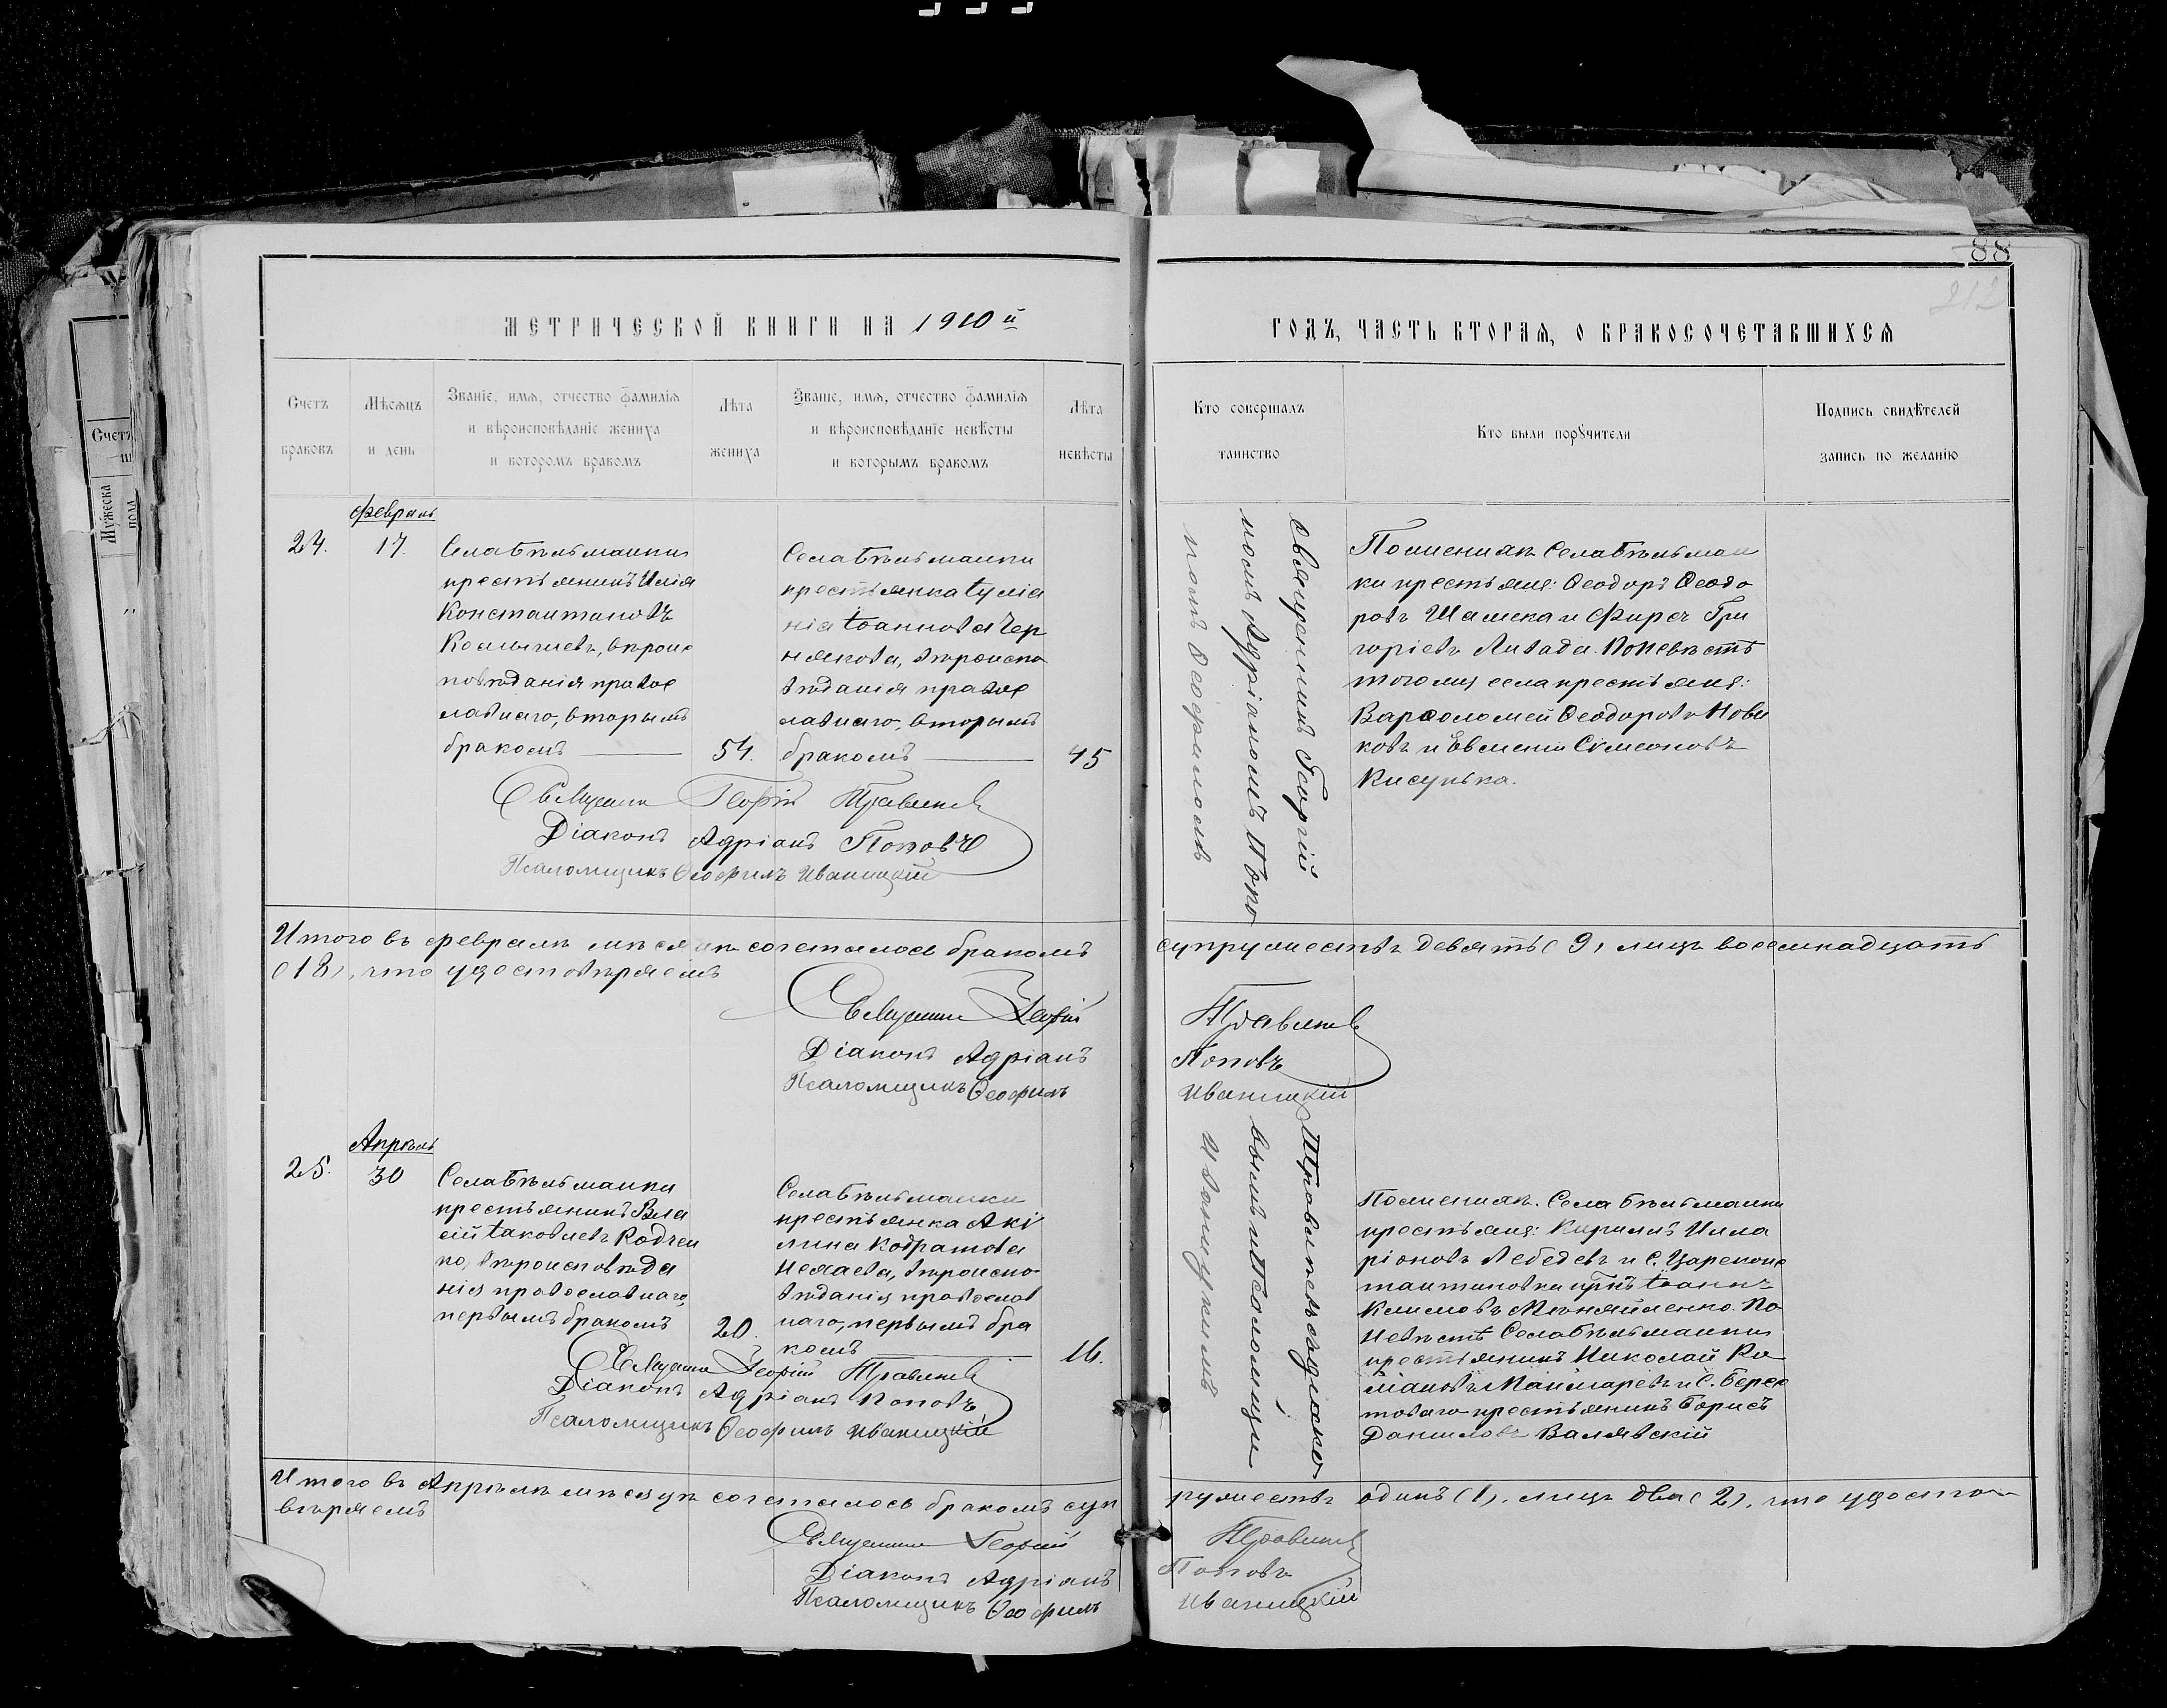 88
212
МЕТРИЧЕСКОЙ КНИГИ НА 1910й
ГОДЪ, ЧАСТЬ ВТОРАЯ, О БРАКОСОЧЕТАВШИХСЯ
Счетъ
браковъ
Мѣсяцъ
и день
Званіе, имя, отчество фамилія
и вѣроисповѣданіе жениха
и которомъ бракомъ
Лѣта
жениха
Званіе, имя, отчество фамилія
и вѣроисповѣданіе невѣсты
и которымъ бракомъ
Лѣта
невѣсты
Кто совершалъ
таинство
Кто были поручители
Подпись свидѣтелей
запись по желанію
Счетъ
Мужеска
пола
февраль
24.
17.
Села Бѣльманки
крестьянинъ Илія
Константиновъ
вѣроис
повѣданія правос
лавнаго, вторымъ
бракомъ
54.
Села Бѣльманки
крестьянка Іуліа
нія Іоаннова Чер
някова, вѣроиспо
вѣданія правос
лавнаго, вторымъ
бракомъ
45
Священникъ Георгій
номъ Адріаномъ Попо
комъ Ѳеофиломъ
По женихѣ Села Бѣльман
ки крестьяне: Ѳеодоръ Ѳеодо
ровъ Шамска и Фирсъ Гри
горіевъ Ливада. По Невѣстѣ
того же села крестьяне:
Варѳоломей Ѳеодоровъ Нови
ковъ и Евменій Сѵмеоновъ
Кисунька.
Священникъ Георгій Правител
Діаконъ Адріанъ Поповъ
Псаломщикъ Ѳеофилъ Иваницкій
Итого въ февралѣ мѣсяцѣ сочеталось бракомъ
супружествъ девять (9), лицъ восемнадцать
(18), что удостовѣряемъ
Священникъ Георгій
Правител
Діаконъ Адріанъ
Поповъ
Псаломщикъ Ѳеофилъ
Иваницкій
Апрѣль
25.
30
Села Бѣльманки
крестьянинъ Вла
сій Іаковлевъ Радчен
ко, вѣроисповѣда
нія православнаго,
первымъ бракомъ
20.
Села Бѣльманки
крестьянка Акі
лина Кодратова
Нехаева, вѣроиспо
вѣданія православ
наго, первымъ бра
комъ
16.
Правительсъдіако
вымъ и Псаломщи
Иваницкимъ
По женихѣ. Села Бѣльманки
крестьяне: Кириллъ Илла
ріоновъ Лебедевъ и с. Цареконс
тантиновки крнъ Іоаннъ
Климовъ Михняйленко. По
Невѣстѣ Села Бѣльманки
крестьянинъ Николай Ка
с. Берес
товаго крестьянинъ Борисъ
Даниловъ Валявскій
Священникъ Георгій Правител
Діаконъ Адріанъ Поповъ
Псаломщикъ Ѳеофилъ Иваницкій
Итого въ Апрѣлѣ мѣсяцѣ сочеталось бракомъ суп
ружествъ одинъ (1), лицъ два (2), что удосто-
вѣряемъ
Священникъ Георгій
Правител
Діаконъ Адріанъ
Поповъ
Псаломщикъ Ѳеофилъ
Иваницкій